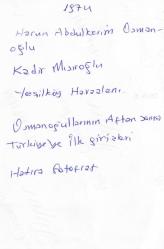 1974
Harun Abdulkerim Osman-
oğlu
Kadir Mısıroğlu
Yeşilköy Havaalanı
Osmanoğullarının Aftan sonra
Türkiye'ye ilk girişleri
Hatıra Fotoğraf